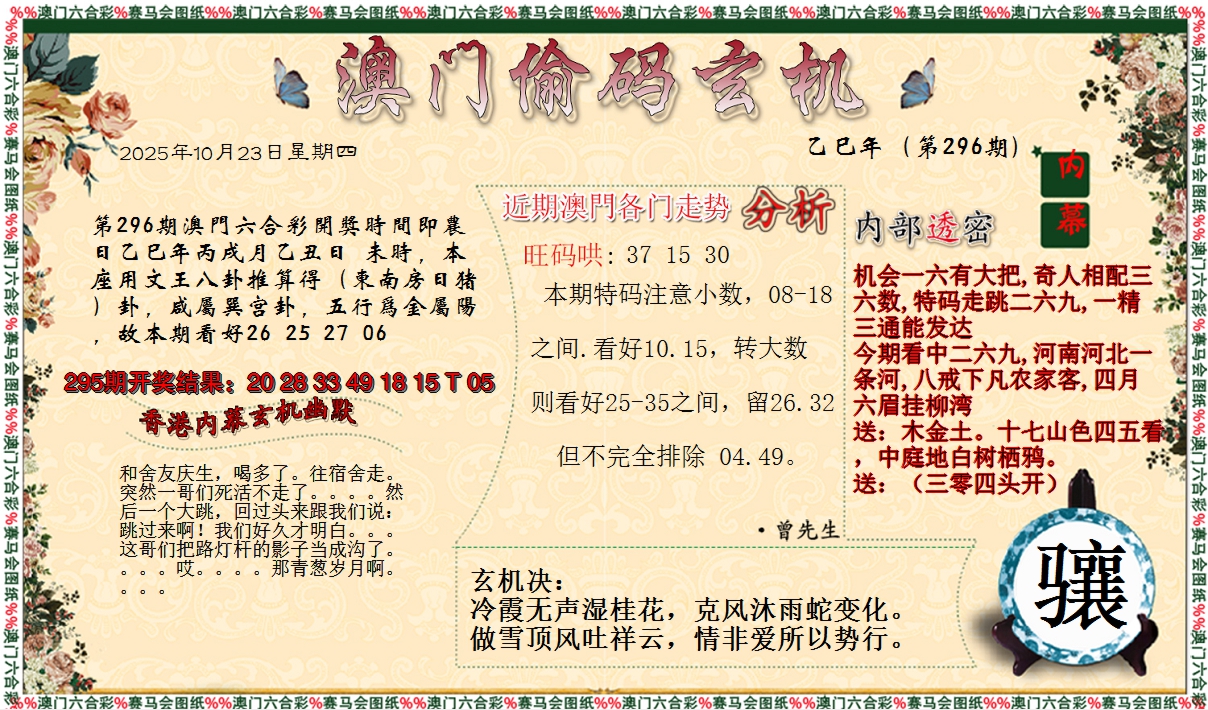 %%澳门六合彩%赛马会图纸%%澳门六合彩%赛马会图纸%%澳门六合彩%赛马会图纸%%澳门六合彩%赛马会图纸%%澳门六合彩%赛马会图纸%%澳门六合彩%赛马会图纸%%
澳门偷码玄机
2025年10月23日星期四
乙巳年（第296期）
内
幕
第296期澳門六合彩開獎時間即農
日乙巳年丙戌月乙丑日 未時，本
座用文王八卦推算得（東南房日猪
）卦，咸屬巽宫卦，五行爲金屬陽
，故本期看好26 25 27 06
295期开奖结果：20 28 33 49 18 15 T 05
香港内幕玄机幽默
和舍友庆生，喝多了。往宿舍走。
突然一哥们死活不走了。。。。然
后一个大跳，回过头来跟我们说：
跳过来啊！我们好久才明白。。。
这哥们把路灯杆的影子当成沟了。
。。。哎。。。。那青葱岁月啊。
。。。
近期澳門各门走势 分析
旺码哄: 37 15 30
本期特码注意小数，08-18
之间.看好10.15，转大数
则看好25-35之间，留26.32
但不完全排除 04.49。
·曾先生
内部透密
机会一六有大把,奇人相配三
六数,特码走跳二六九,一精
三通能发达
今期看中二六九,河南河北一
条河,八戒下凡农家客,四月
六眉挂柳湾
送：木金土。十七山色四五看
，中庭地白树栖鸦。
送：（三零四头开）
玄机决：
冷霞无声湿桂花，克风沐雨蛇变化。
做雪顶风吐祥云，情非爱所以势行。
骧
%%澳门六合彩%赛马会图纸%%澳门六合彩%赛马会图纸%%澳门六合彩%赛马会图纸%%澳门六合彩%赛马会图纸%%澳门六合彩%赛马会图纸%%澳门六合彩%赛马会图纸%%